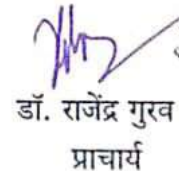 डॉ. राजेंद्र गुरव
प्राचार्य